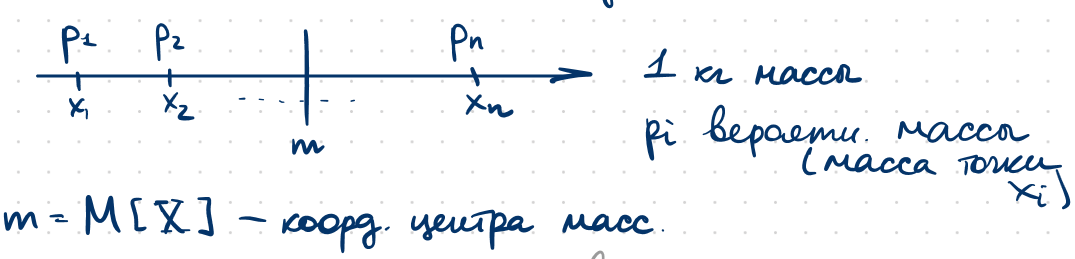 p1 p2 pn
x1 x2 xn
m
1 кг массы
pi вероятн. массы
(масса точки
xi)
m = M[X] – коорд. центра масс.